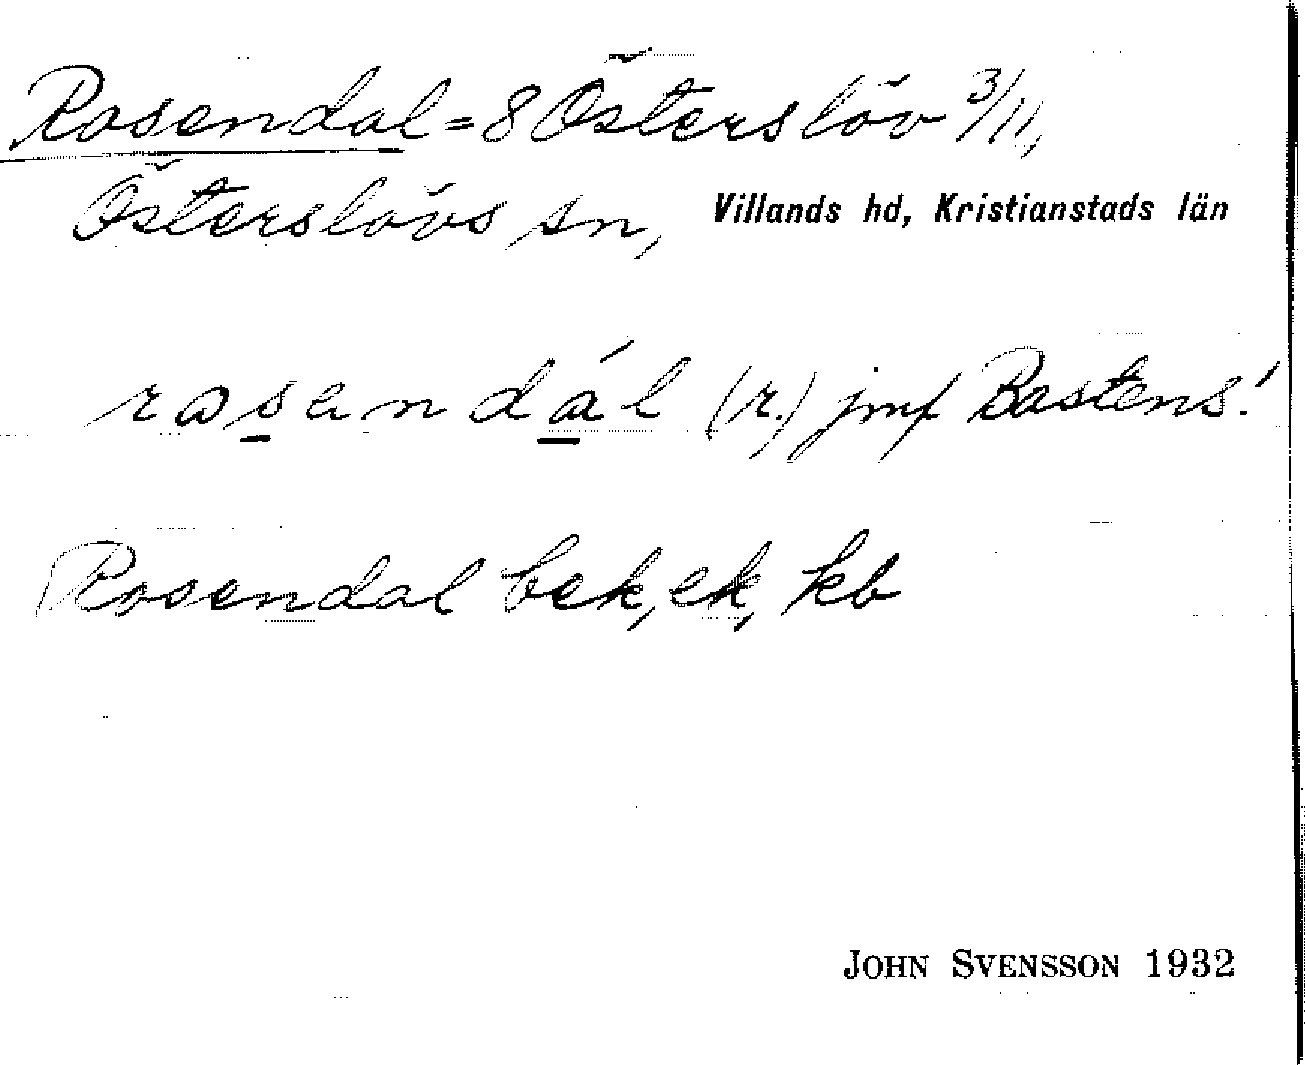 Rosendal = 8 Österslöv 3/11,
Österslövs sn, Villands hd, Kristianstads län
rosendál (r.) jmf Bastens!
Rosendal bek, ek, kb
JOHN SVENSSON 1932